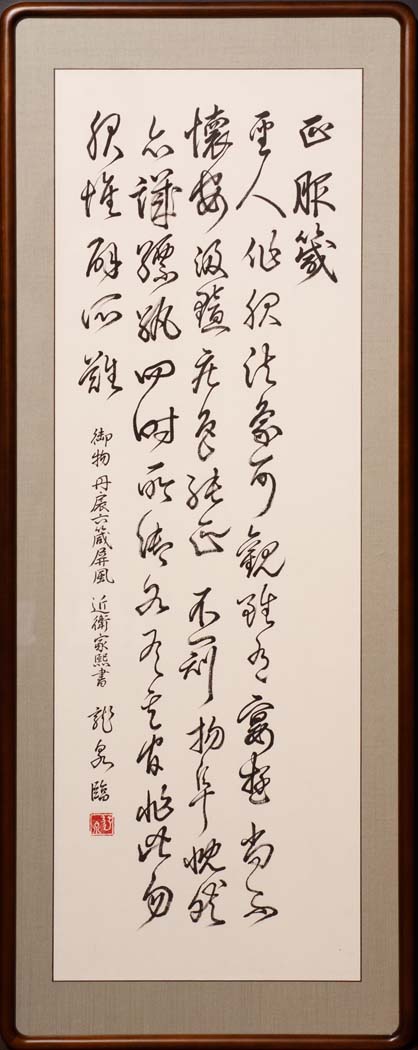 正服箴
聖人作服法象可觀雖在宴遊尚不
懷安汲黯莊色能正不冠楊阜慨然
亦譏縹紈四時所御各有其官非此勿
服惟辟所難
御物 丹扆六箴屏風 近衛家熙書 龍泉臨